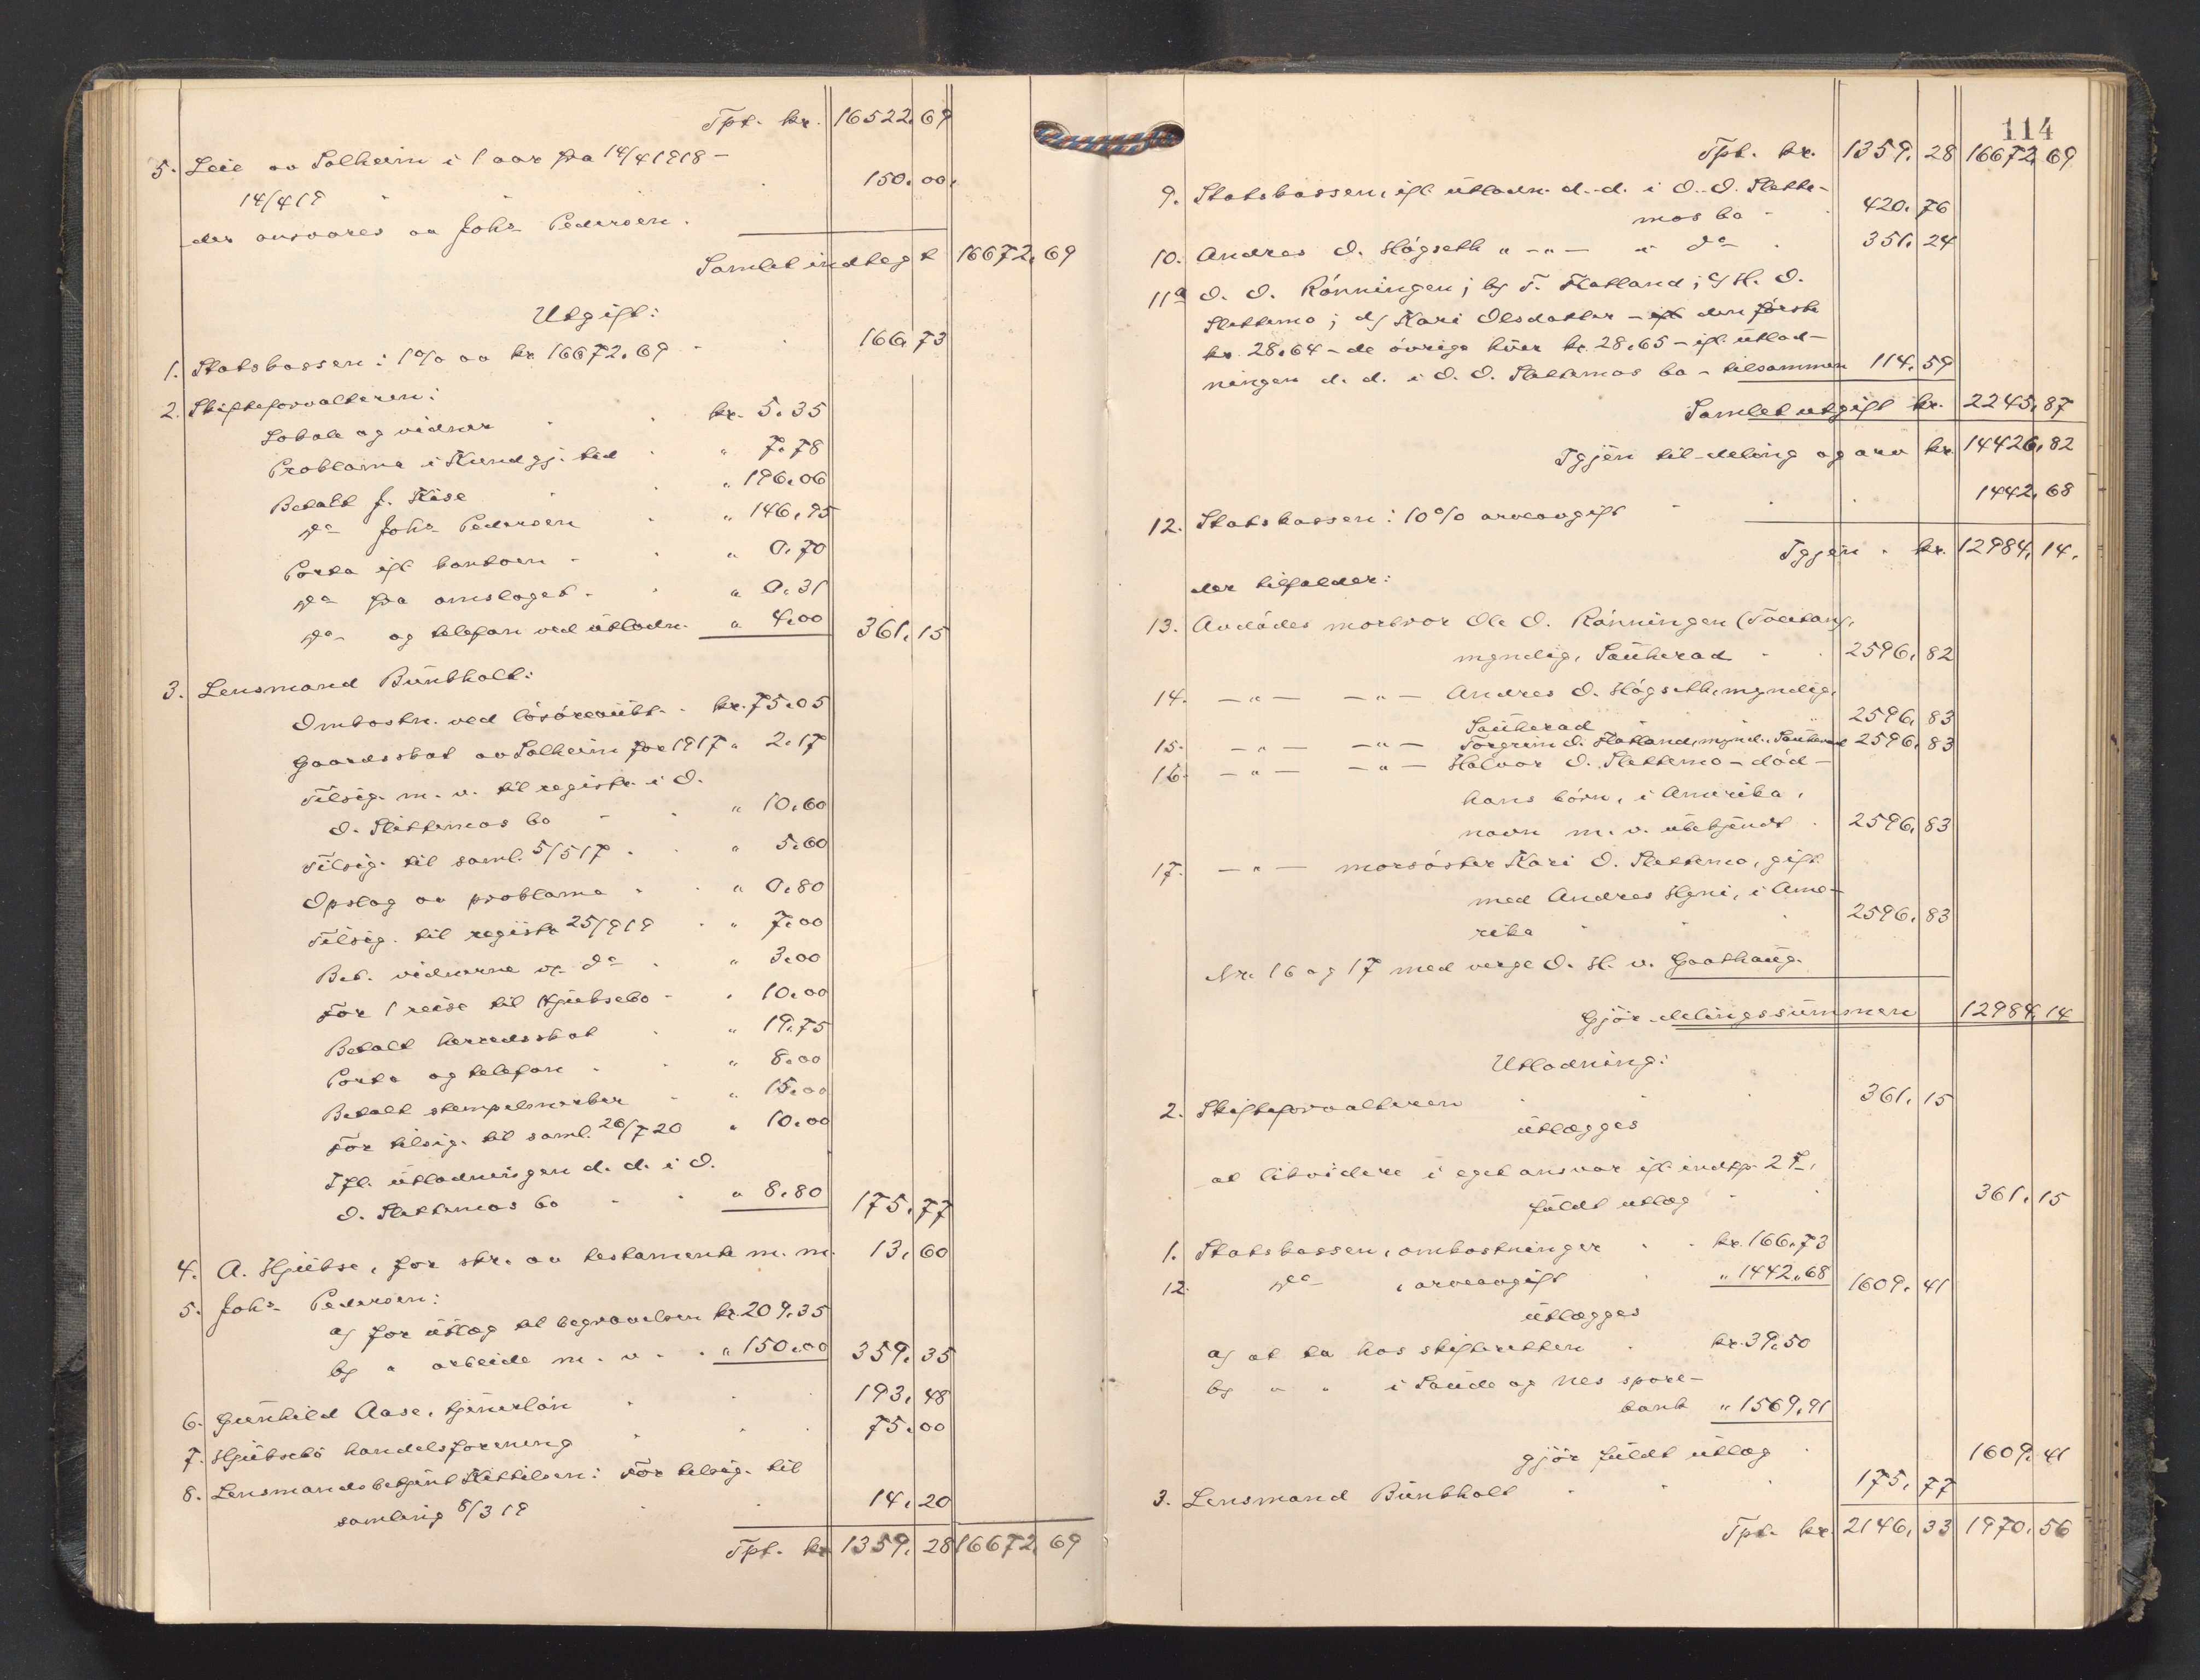 Tpt. kr. 16522,69
5. Leie av Solheim i 1 aar fra 14/4 1918 -
14/4 19 150,00
der ansvares av Johs Pedersen.
Samlet indtegt 16672,69
Utgift:
1. Statskassen: 1% av kr 16672,69 166,73
2. Skifteforvalteren:
Lokale og vidner kr. 5,35
Proklama i Kundgj. tid " 7,78
Betalt J. Kise " 196,06
do Johs Pedersen " 146,95
Porto ifl. kontoen " 0,70
do fra omslaget " 0,31
do og telefon ved utlodn. " 4,00 361,15
3. Lensmand Bunkholt:
Omkostn. ved lösöreaukt. kr. 75,05
Gaardsskat av Solheim for 1917 " 2,17
Tilsig. m. v. til registr. i O.
O. Slettemos bo " 10,60
Tilsig. til saml. 5/5 17 " 5,60
Opslag av proklama " 0,80
Tilsig. til registr 25/9 19 " 7,00
Bet. vidnerne v. do " 3,00
For 1 reise til Hjuksebo " 10,00
Betalt herredsskat " 19,75
Porto og telefon " 8,00
Betalt stempelmerker " 15,00
For tilsig. til saml. 26/7 20 " 10,00
Ifl. utlodningen d. d. i O.
O. Slettemos bo " 8,80 175,77
4. A. Hjukse, for skr. av testamente m. m. 13,60
5. Johs Pedersen:
a/ for utlæg til begravelsen kr. 209,35
b/ " arbeide m. v. " 150,00 359,35
6. Gunhild Aase, tjenerlön 193,48
7. Hjuksebö handelsforening 75,00
8. Lensmandsbetjent Kittilsen: For tilsig. til
samling 8/3 19 14,20
Tpt. kr 1359,28 16672,69
114
Tpt. kr. 1359,28 16672,69
9. Statskassen, ifl. utlodn. d. d. i O. O. Slette-
mos bo 420,76
10. Andres O. Högseth " - " - " do 351,24
11 a O. O. Rönningen; b/ T. Flatland; c/ H. O.
Slettemo; d/ Kari Olsdatter - ifl. den förste
kr. 28,64 - de övrige hver kr. 28,65 - ifl. utlod-
ningen d. d. i O. O. Slettemos bo - tilsammen 114,59
Samlet utgift kr. 2245,87
Igjen til deling og arv kr. 14426,82
12. Statskassen: 10% arveavgift 1442,68
Igjen kr. 12984,14.
der tilfalder:
13. Avdödes morbror Ole O. Rönningen
myndig, Sauherad 2596,82
14. - " - - " - Andres O. Högseth, myndig,
Sauherad 2596,83
15. - " - - " - Torgrim O. Flatland, mynd., Sauherad 2596,83
16. - " - - " - Halvor O. Slettemo - död -
hans börn, i Amerika,
navn m. v. ubekjendt 2596,83
17. - " - morsöster Kari O. Slettemo, gift
med Andres Hyni, i Ame-
rika 2596,83
Nr. 16 og 17 med verge O. H. v. Gaathaug.
Gjör delingssummen 12984,14
Utlodning:
2. Skifteforvalteren 361,15
utlægges
at likvidere i eget ansvar ifl. indtp. 2
fuldt utlæg 361,15
1. Statskassen, omkostninger kr. 166,73
12. do , arveavgift " 1442,68 1609,41
utlægges
a/ at ta hos skifteretten kr. 39,50
b/ " " i Saude og Nes spare-
bank " 1569,91
gjör fuldt utlæg 1609,41
3. Lensmand Bunkholt 175,77
Tpt. kr. 2146,33 1970,56